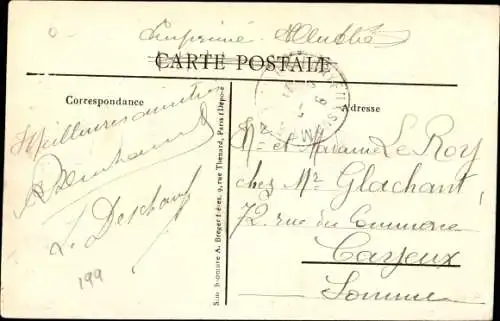 Imprimé
CARTE POSTALE
Correspondance
Adresse
Meilleures amitiés
L. Deschamps
199
Mr et Madame Le Roy
chez Mr Glachant,
72 rue du Commerce
Cayeux
Somme
A. Breger frères, 9, rue Thénard, Paris (Déposé